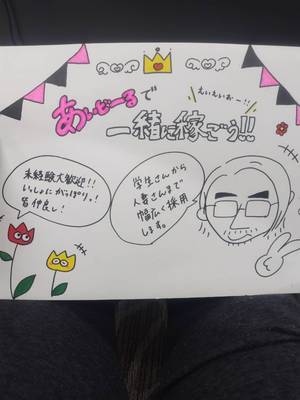 あいどーるで
えいえいおー!!
一緒に稼ごう!!
未経験大歓迎!!
いっしょにがっぽりっ!
皆仲良し!
学生さんから
人妻さんまで
幅広く採用
します。